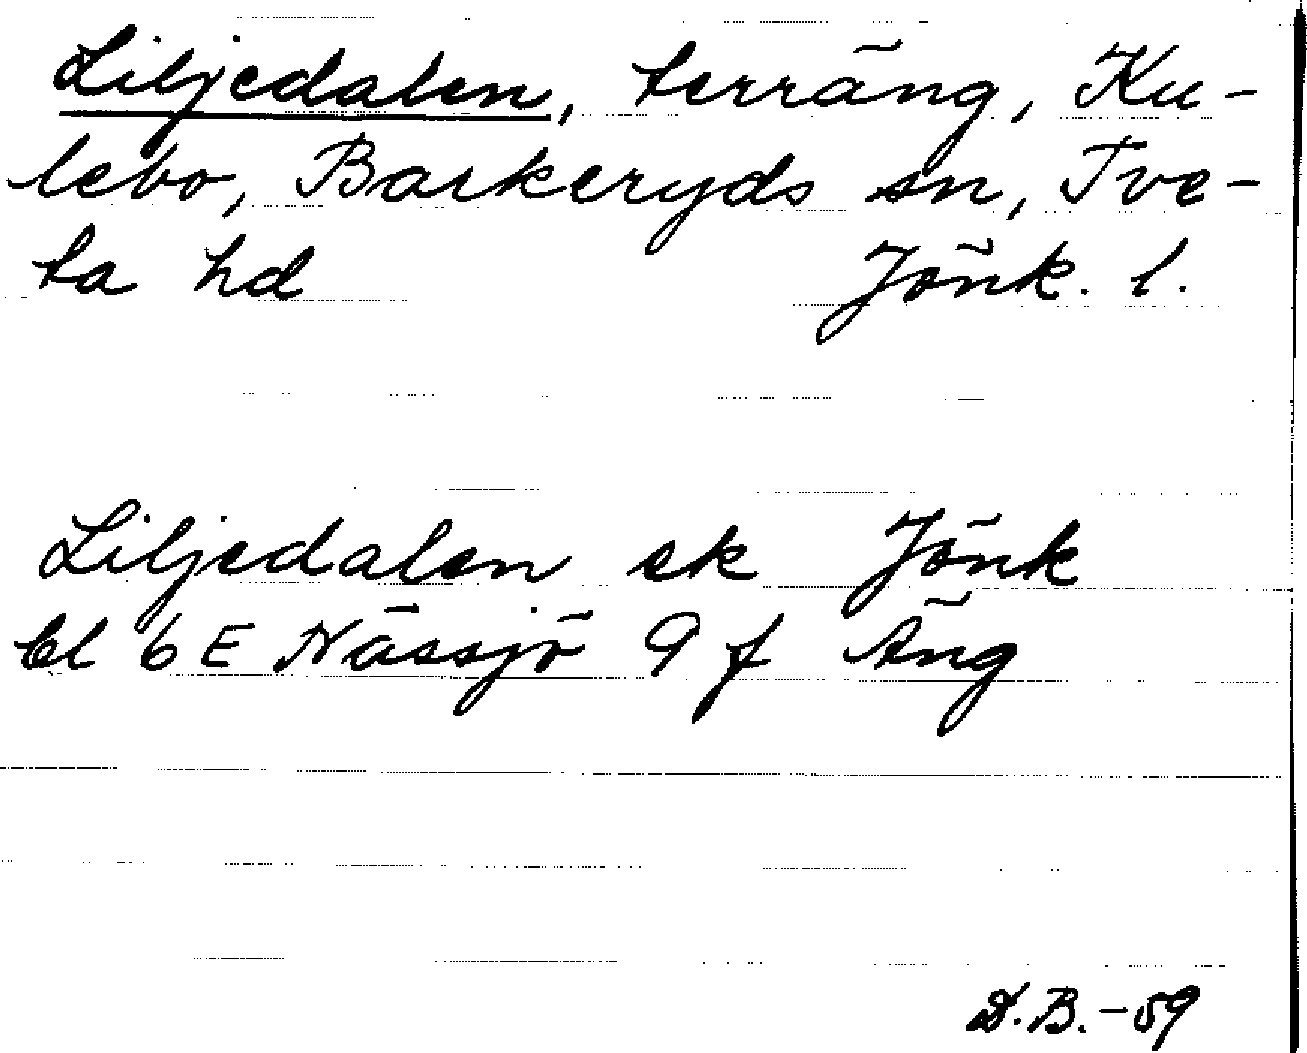 Liljedalen, terräng, Ku-
lebo, Barkeryds sn, Tve-
ta hd Jönk. l.
Liljedalen ek Jönk
bl 6 E Nässjö 9 f Äng
D.B.-59